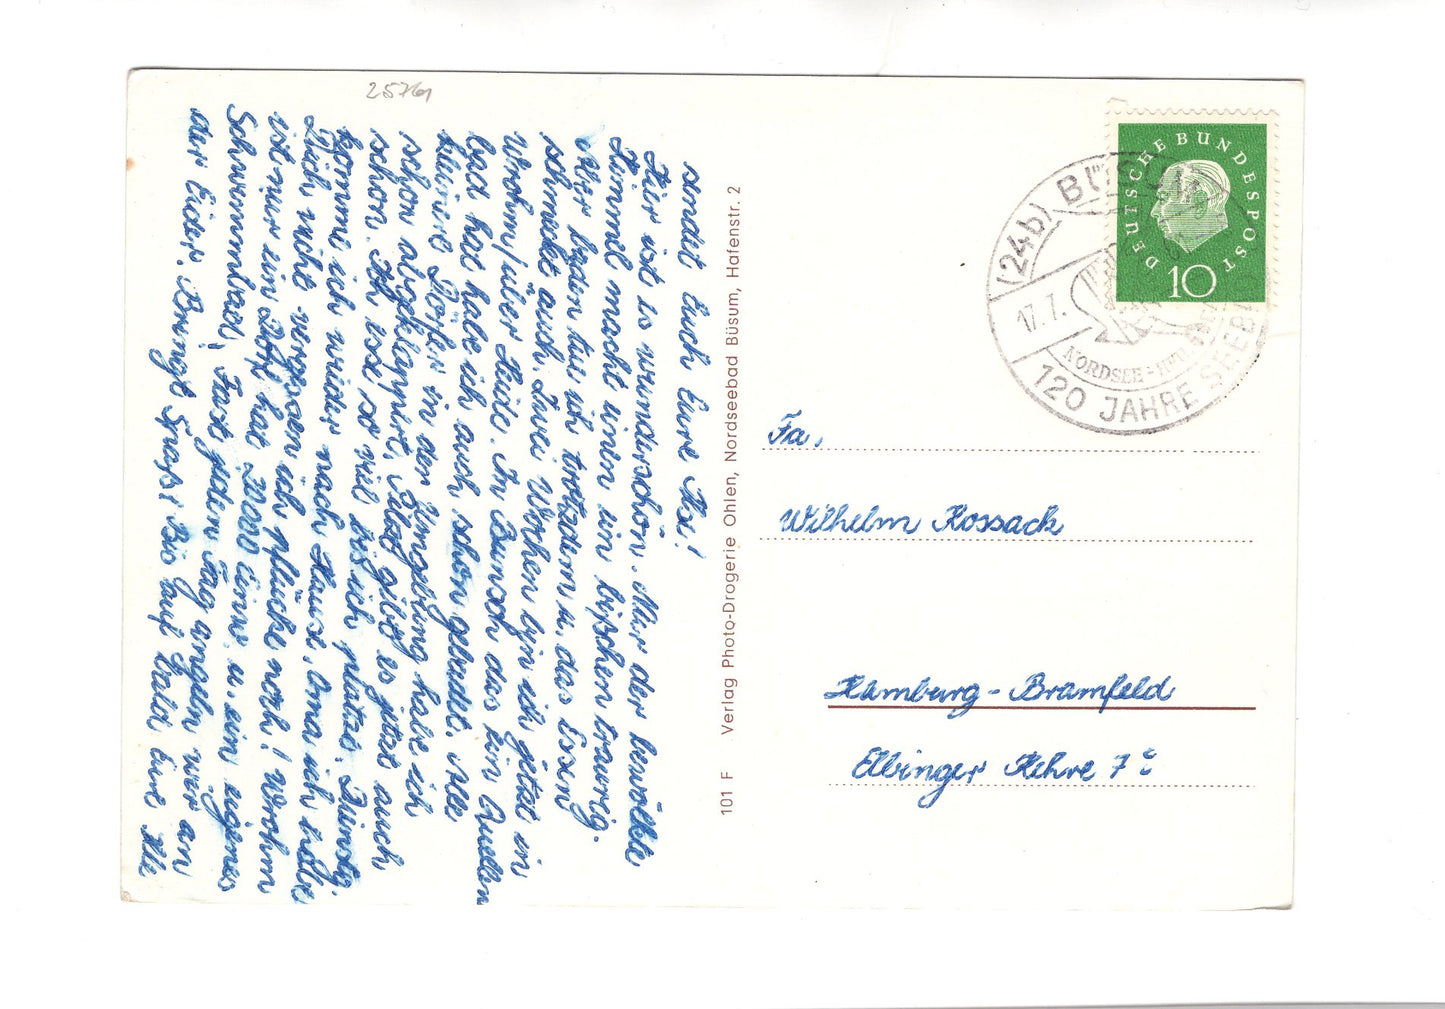 25761
sendet Euch Eure Ilse!
Hier ist es wunderschön. Nur der bewölkte
Himmel macht einen ein bißchen traurig.
Aber baden tue ich trotzdem u. das Essen
schmeckt auch. Zwei Wochen bin ich jetzt in
Wrohm/über Heide. In Bunsoh das ein Quellen
bad hat habe ich auch, schon gebadet. Alle
kleinen Dörfer in der Umgebung habe ich
schon abgeklappert, Pilze gibt es jetzt auch
schon. Ich esse so viel bis ich platze. Dienstg.
komme ich wieder nach Hause. Oma ich habe
Dich nicht vergessen ich pflücke noch! Wrohm
ist nur ein Dorf hat 2000 Einw. u. ein eigenes
Schwimmbad! Fast jeden Tag angeln wir an
der Eider. Bringt Spaß! Bis auf bald Eure Ilse
101 F Verlag Photo-Drogerie Ohlen, Nordseebad Büsum, Hafenstr. 2
DEUTSCHE BUNDESPOST
10
(24b) BÜSUM
17.7.
NORDSEE-
120 JAHRE SEEBAD
Fa.
Wilhelm Kossack
Hamburg-Bramfeld
Elbinger Kehre 7